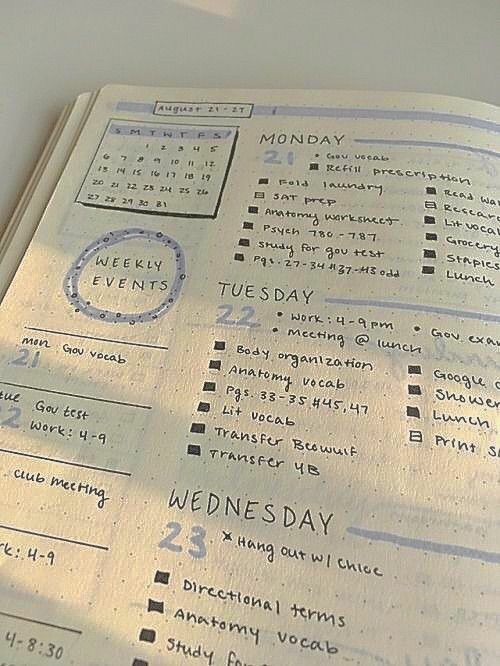 August 21-27
S M T W T F S
1 2 3 4 5
6 7 8 9 10 11 12
13 14 15 16 17 18 19
20 21 22 23 24 25 26
27 28 29 30 31
WEEKLY
EVENTS
mon Gov vocab
21
Gov test
work: 4-9
club meeting
4-9
4-8:30
MONDAY
21
Gov vocab
Refill prescription
Fold laundry
SAT prep
Anatomy worksheet
Psych 780-787
Study for gov test
Pgs. 27-34 #37-43 odd
Read
Lit vocab
Grocery
Staples
Lunch
TUESDAY
22
work: 4-9pm
meeting @ lunch
Gov
Body organization
Anatomy vocab
Pgs. 33-35 #45,47
Lit vocab
Transfer Beowulf
Transfer YB
Google
Shower
Lunch
Print
WEDNESDAY
23
Hang out w/ Chloe
Directional terms
Anatomy vocab
Study